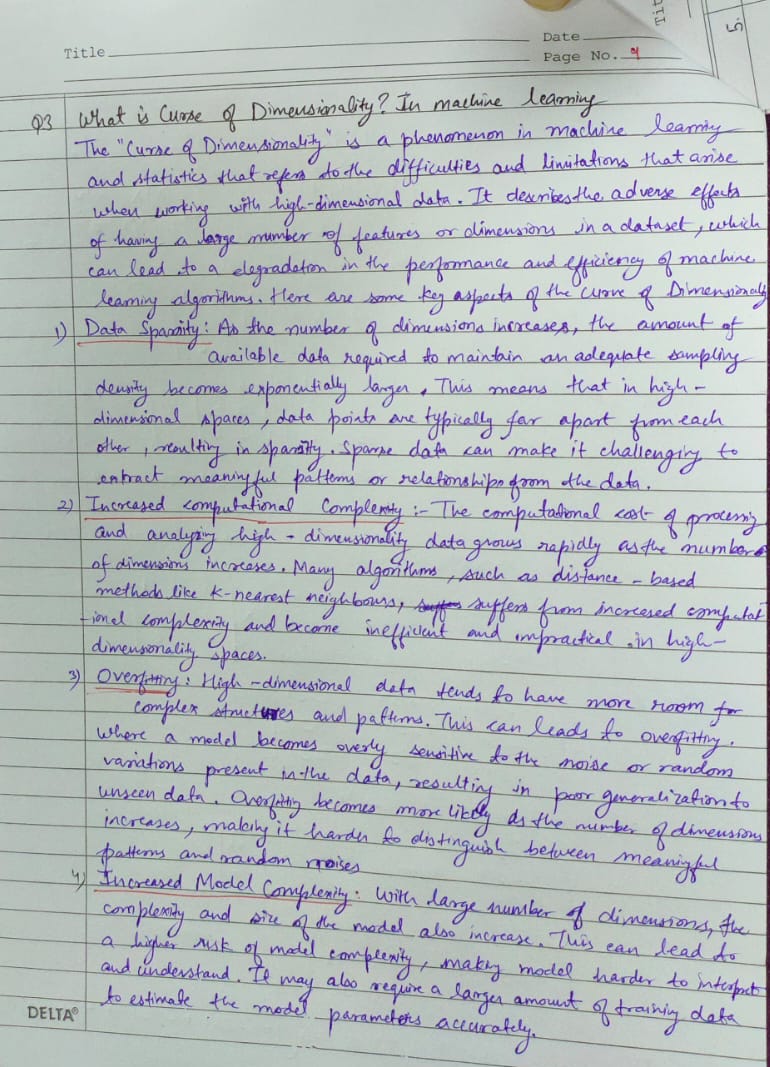 Tit
5.
Title
Date
Page No. 9
Q3 What is Curse of Dimensionality? In machine learning
The "Curse of Dimensionality" is a phenomenon in machine learning
and statistics that refers to the difficulties and limitations that arise
when working with high-dimensional data. It describes the adverse effects
of having a large number of features or dimensions in a dataset, which
can lead to a degradation in the performance and efficiency of machine
learning algorithms. Here are some key aspects of the curve of Dimensionality
1) Data Sparsity: As the number of dimensions increases, the amount of
available data required to maintain an adequate sampling
density becomes exponentially larger. This means that in high-
dimensional spaces, data points are typically far apart from each
other, resulting in sparsity. Sparse data can make it challenging to
extract meaningful patterns or relationships from the data.
2) Increased computational Complexity :- The computational cost of processing
and analyzing high-dimensionality data grows rapidly as the number
of dimensions increases. Many algorithms, such as distance-based
methods like K-nearest neighbours, suffers from increased computat
-ional complexity and become inefficient and impractical in high-
dimensionality spaces.
3) Overfitting: High-dimensional data tends to have more room for
complex structures and patterns. This can leads to overfitting.
where a model becomes overly sensitive to the noise or random
variations present in the data, resulting in poor generalization to
unseen data. Overfitting becomes more likely as the number of dimensions
increases, making it harder to distinguish between meaningful
patterns and random noises
4) Increased Model Complexity: With large number of dimensions, the
complexity and size of the model also increase. This can lead to
a higher risk of model complexity, making model harder to interpret
and understand. It may also require a larger amount of training data
to estimate the model parameters accurately.
DELTA®